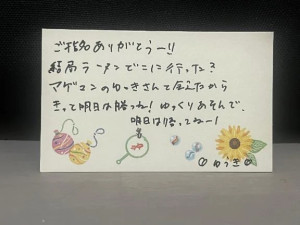 ご指名ありがとうー!!
結局ラーメンどこに行った?
マゲコンのゆっきさんて会えたから
きって明日は勝つね! ゆっくりあそんで、
明日は勝ってねー!
ゆうき